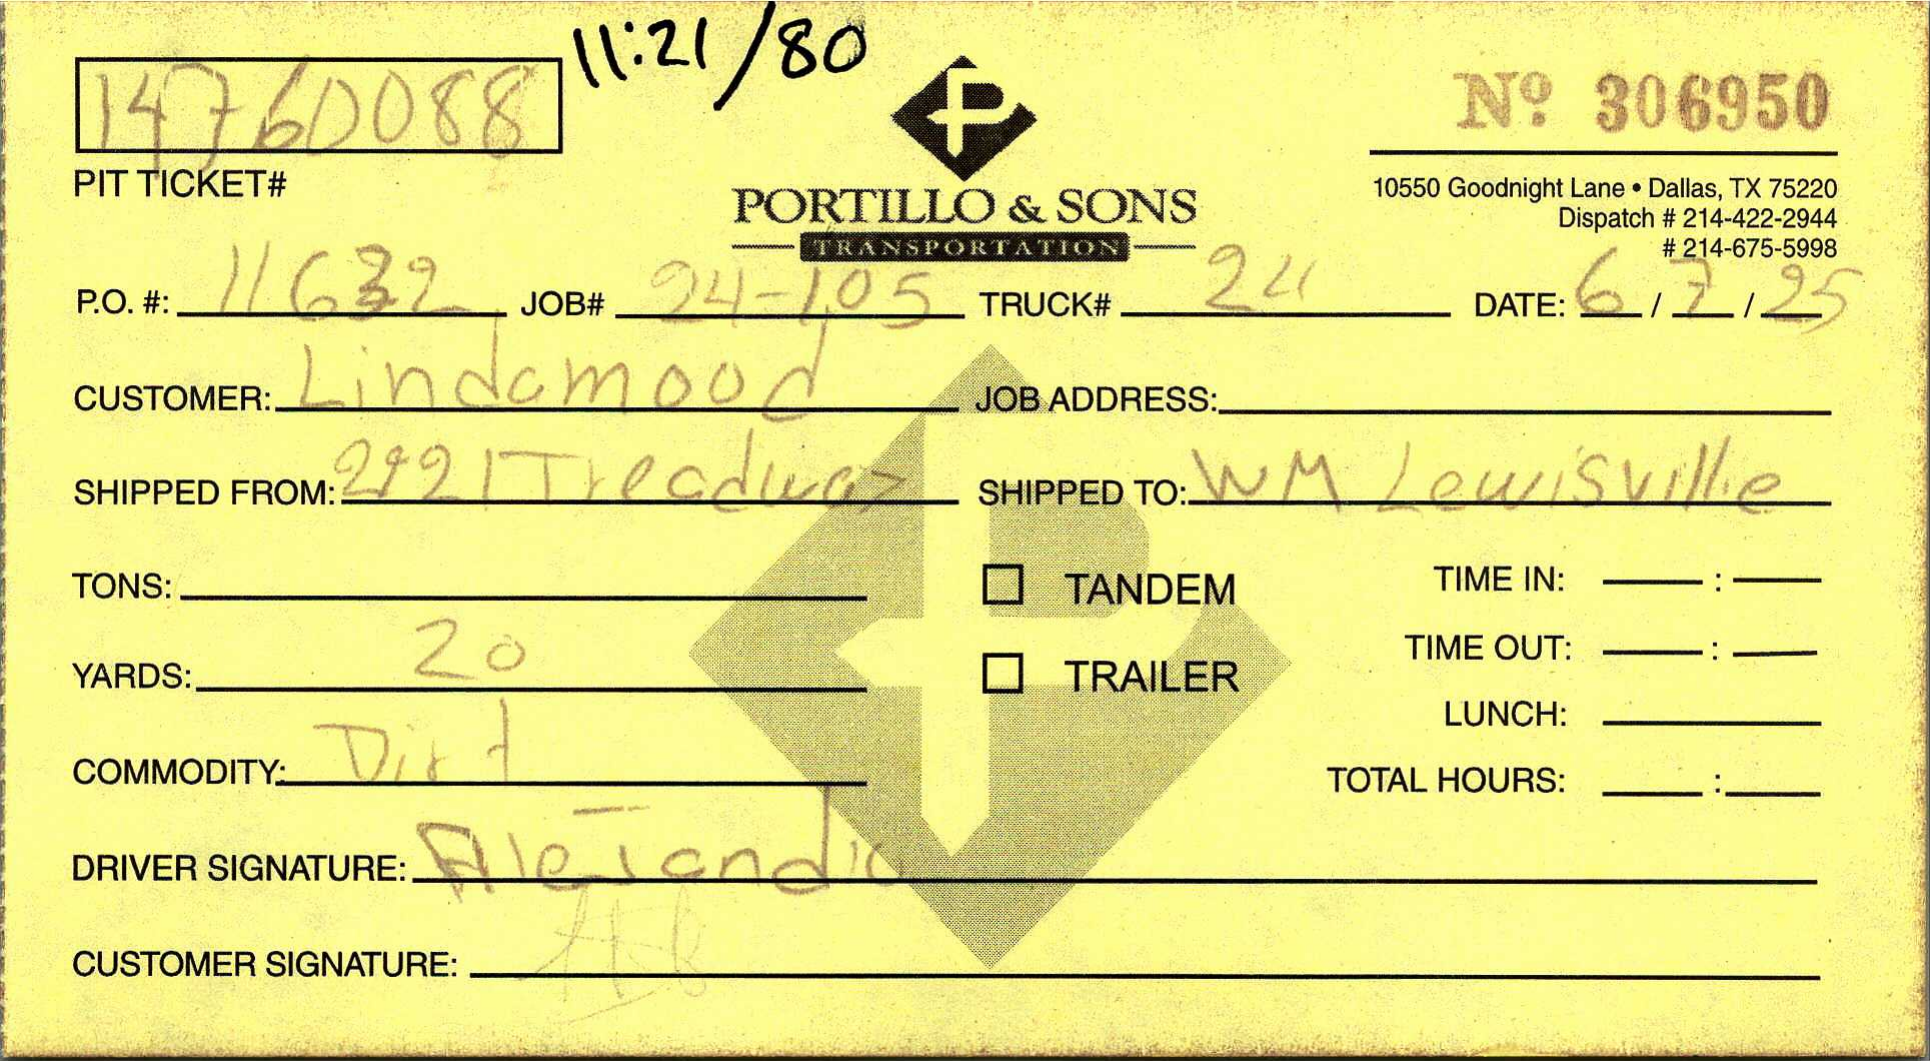 11:21/80
14760088
Nº 306950
PIT TICKET#
PORTILLO & SONS
TRANSPORTATION
10550 Goodnight Lane • Dallas, TX 75220
Dispatch # 214-422-2944
# 214-675-5998
P.O. #: 11632 JOB# 24-105 TRUCK# 24 DATE: 6/7/25
CUSTOMER: Lindamood JOB ADDRESS:
SHIPPED FROM: 2921 Treadway SHIPPED TO: WM Lewisville
TONS: TANDEM TIME IN: :
YARDS: 20 TRAILER TIME OUT: :
LUNCH:
COMMODITY: Dirt TOTAL HOURS: :
DRIVER SIGNATURE: Alejandro
CUSTOMER SIGNATURE: